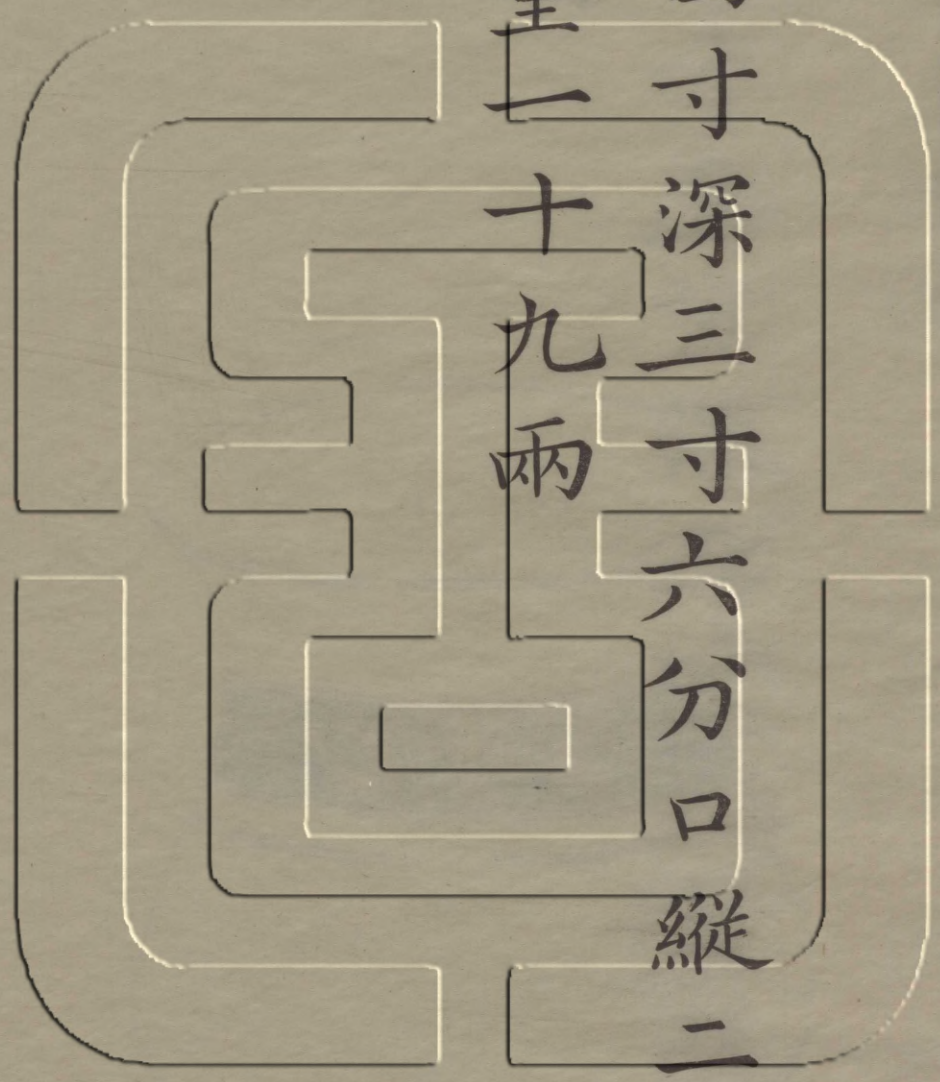 寸深三寸六分口縱二
一十九兩